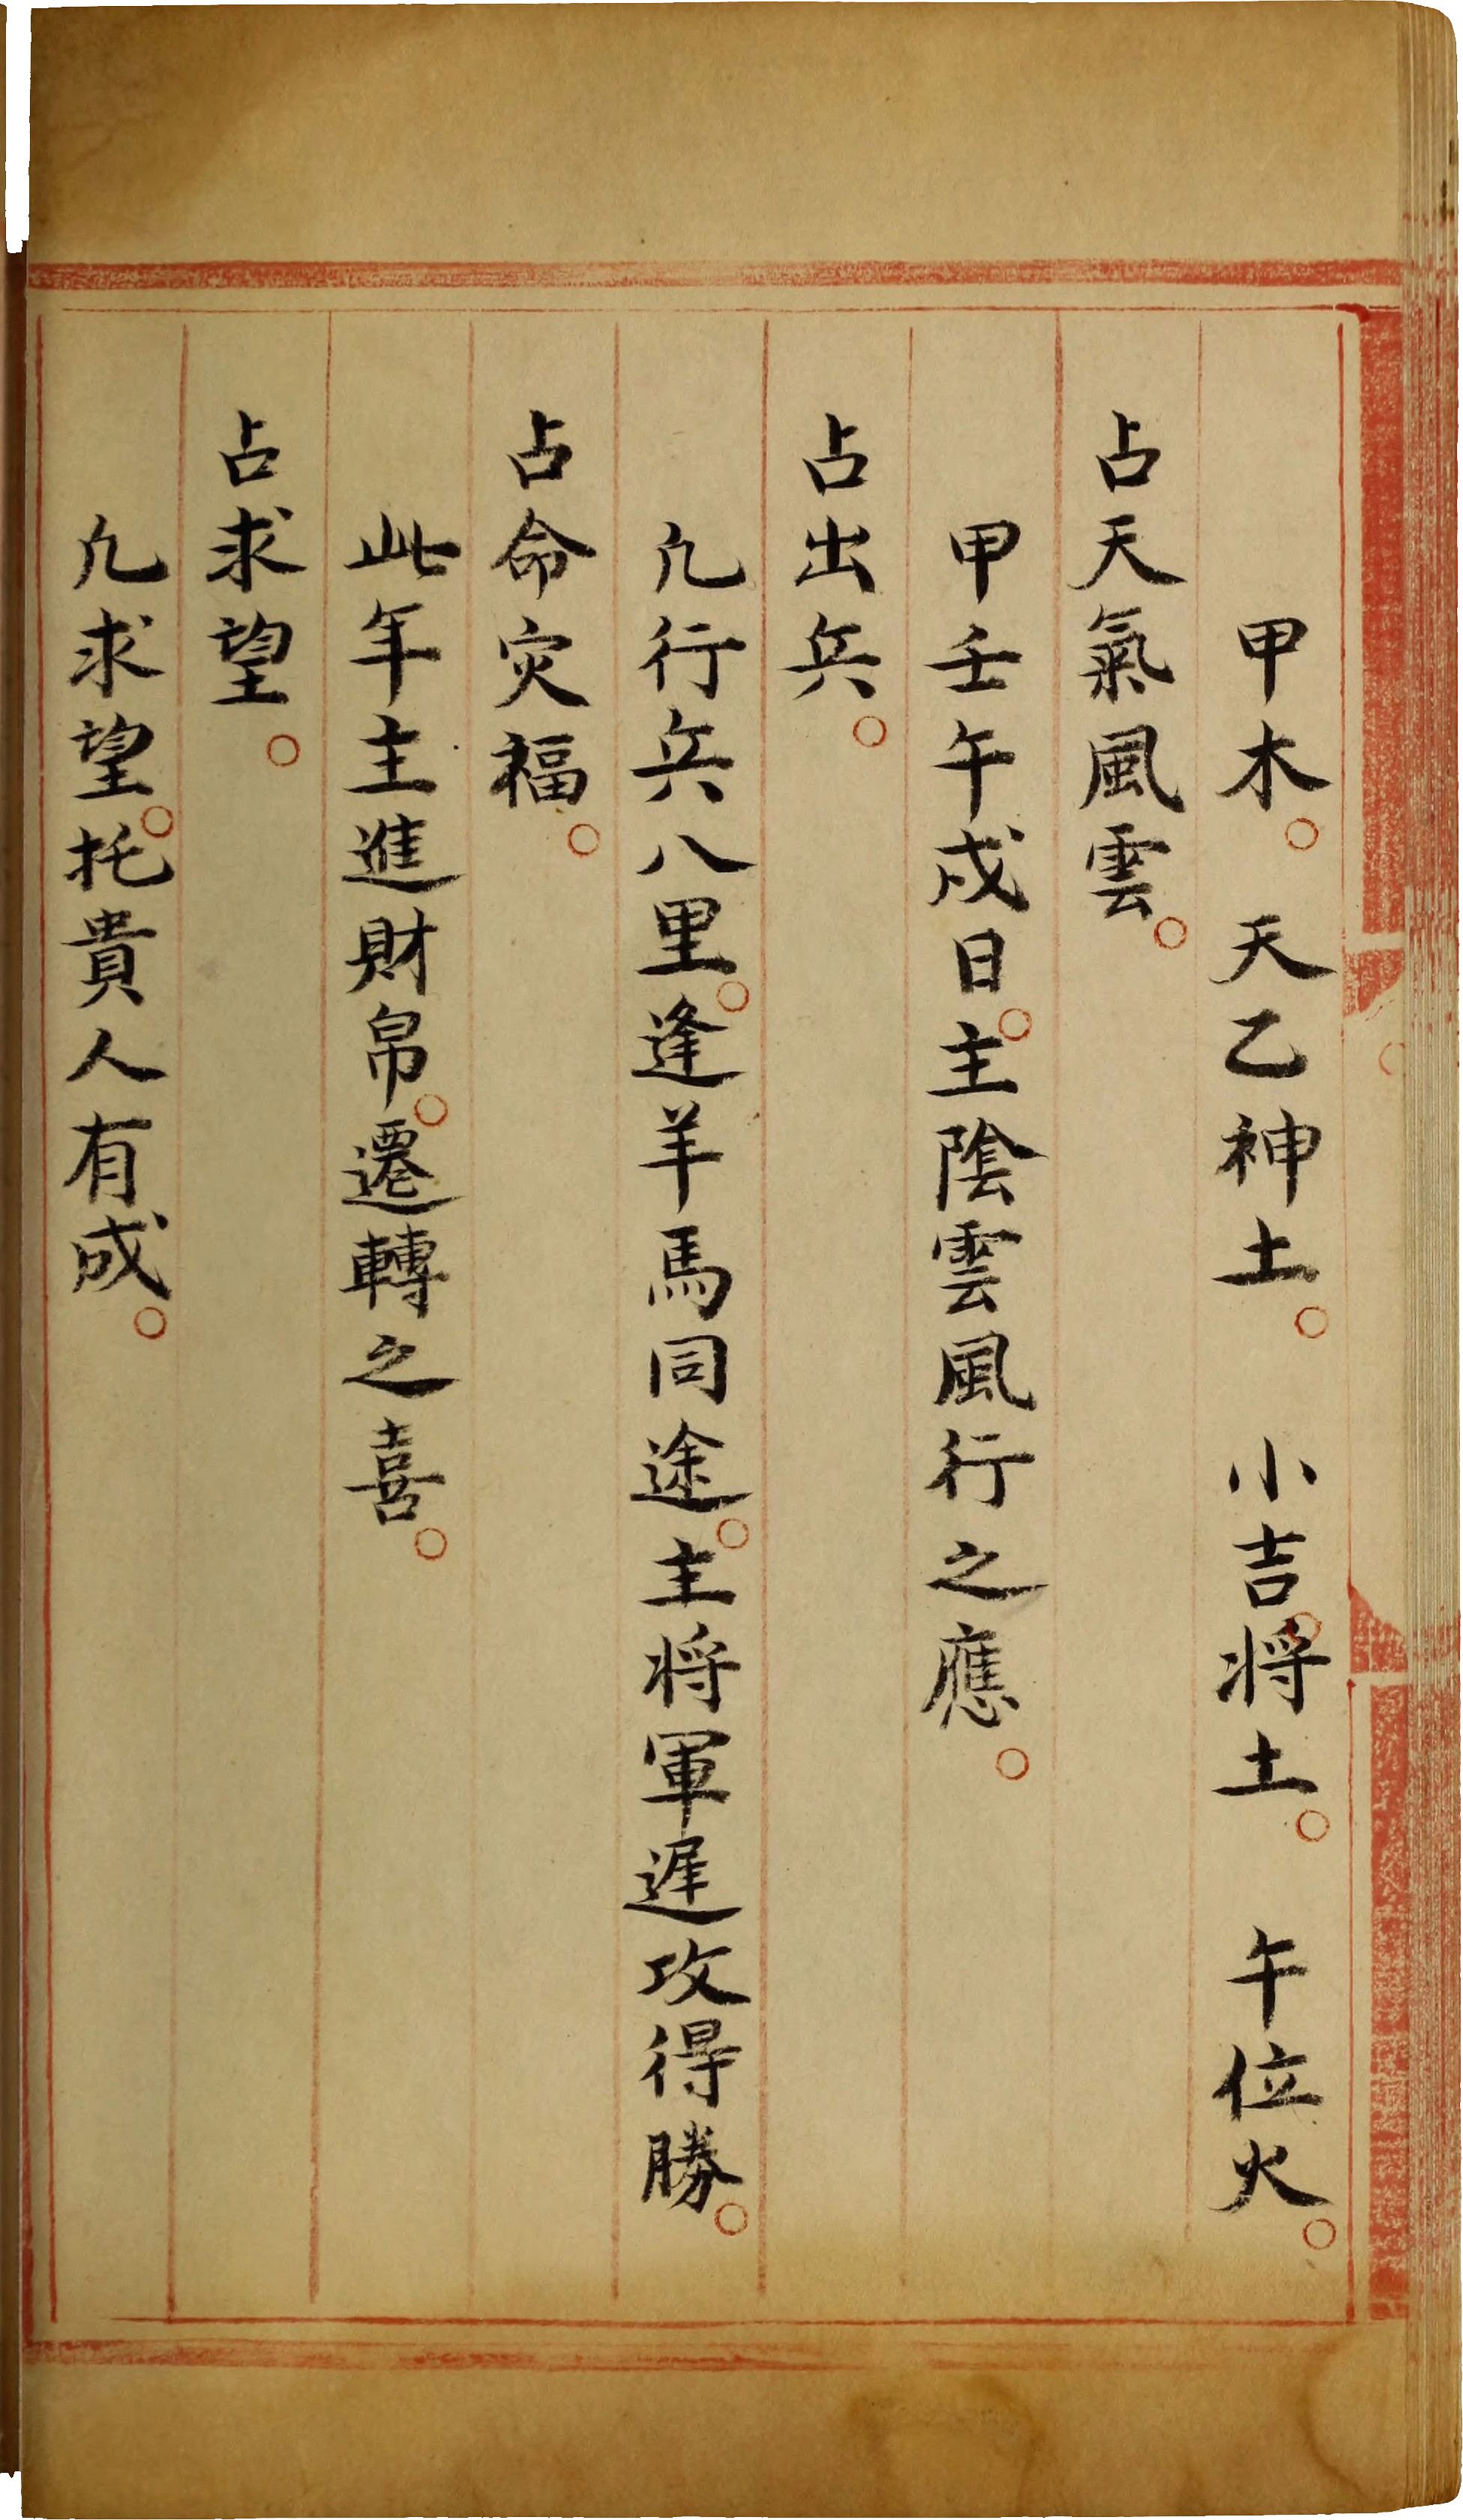 甲木。天乙神土。小吉。将土。午位火。
占天氣風雲。
甲壬午戌日。主陰雲風行之應。
占出兵。
凢行兵八里。逢羊馬同途。主将軍遲攻得勝。
占命灾福。
此年主進財帛。遷轉之喜。
占求望。
凢求望。托貴人有成。